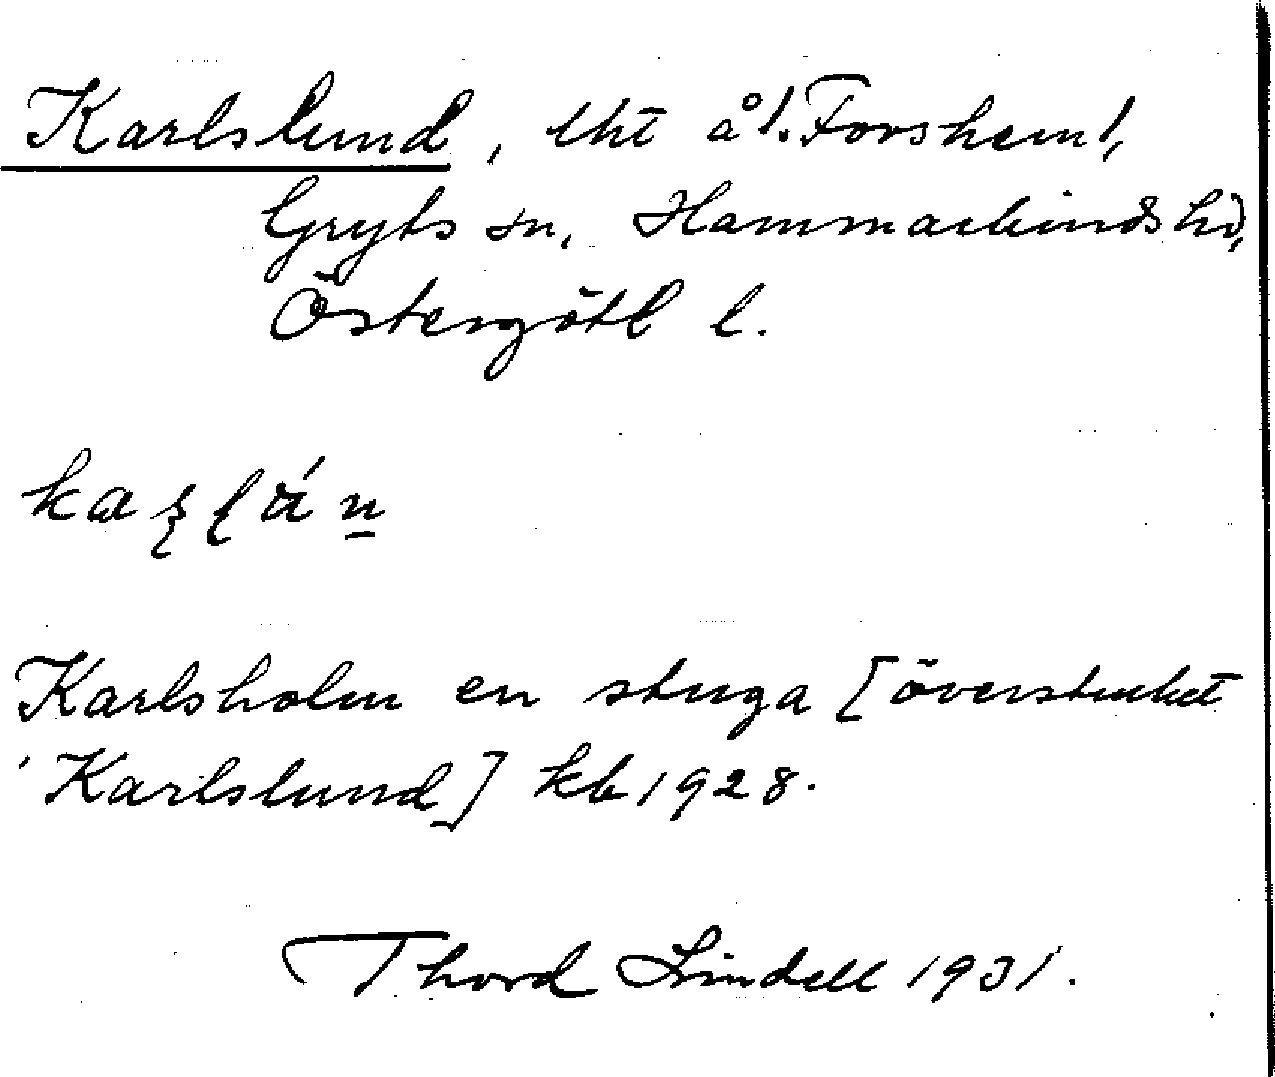 Karlslund, lht å 1. Forshem 1,
Gryts sn, Hammarkinds hd,
Östergötl l.
Karlsholm en stuga [överstruket
Karlslund] kb 1928.
Thord Lindell 1931.